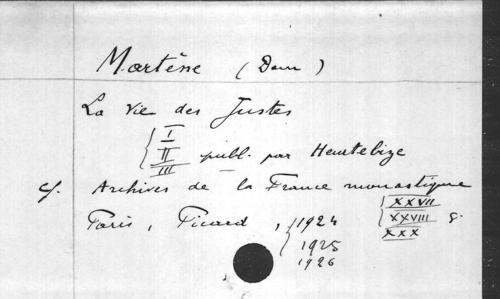 Martène (Dom)
La Vie des Justes
I
II publ. par Heurtebize
III
cf. Archives de la France monastique
XXVII
Paris, Picard, 1924 XXVIII 8.
1925 XXX
1926